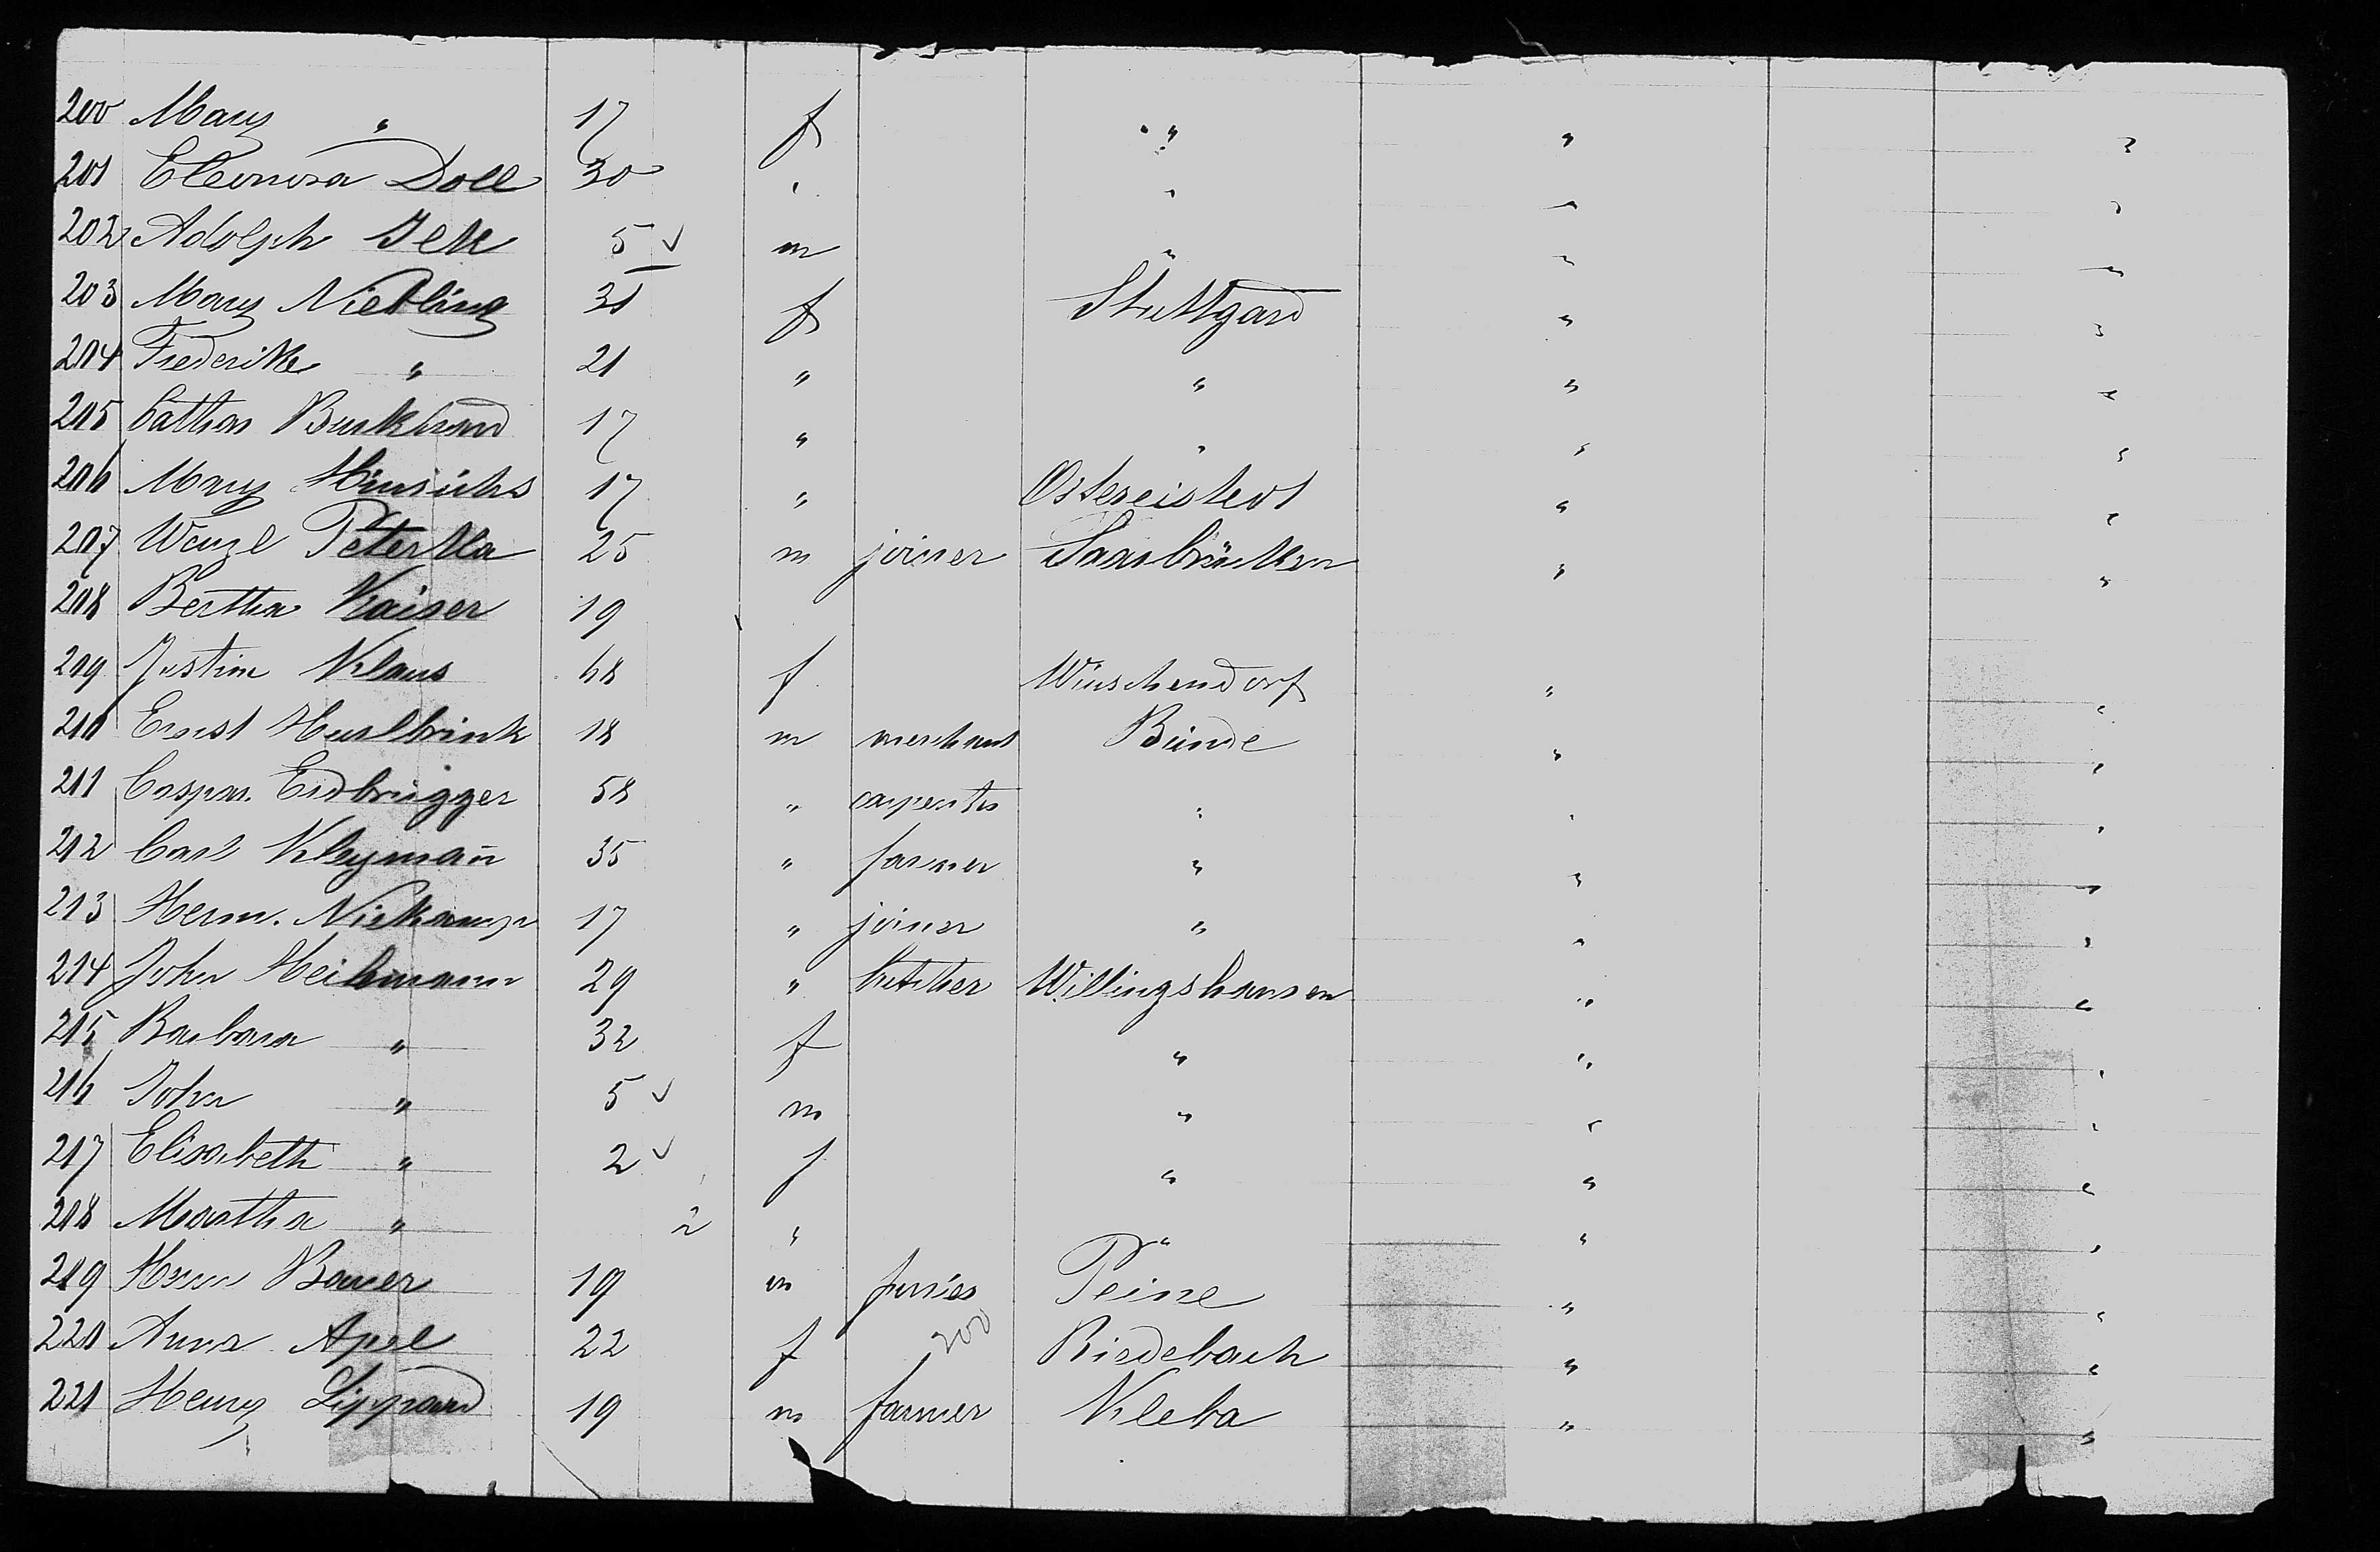 200 Mary " 17 f " " "
201 Eleonora Doll 30 " " " "
202 Adolph 5 ✓ m " " "
203 Mary Niebling 31 f Stuttgard " "
204 Frederike " 21 " " " "
205 Cathar Burkhard 17 " " " "
206 Mary Hinrichs 17 " Ostereistedt " "
207 Wenzl Peterka 25 m joiner Saarbrücken " "
208 Bertha Kaiser 19
209 Justine Klaus 68 f Wünschendorf " "
210 Ernst 18 m merchant Bünde " "
211 Caspar. Erdbrügger 58 " carpenter " " "
212 Carl Kleymañ 35 " farmer " " "
213 Herm. Niekamp 17 " joiner " " "
214 John Heilmann 29 " butcher Willingshausen " "
215 Barbara " 32 f " " "
216 John " 5 ✓ m " " "
217 Elisabeth " 2 ✓ f " " "
218 Martha " 2 " " " "
219 Herm Bauer 19 m Peine " "
200
220 Anna Apel 22 f " "
221 Henry Lippard 19 m farmer Kleba " "